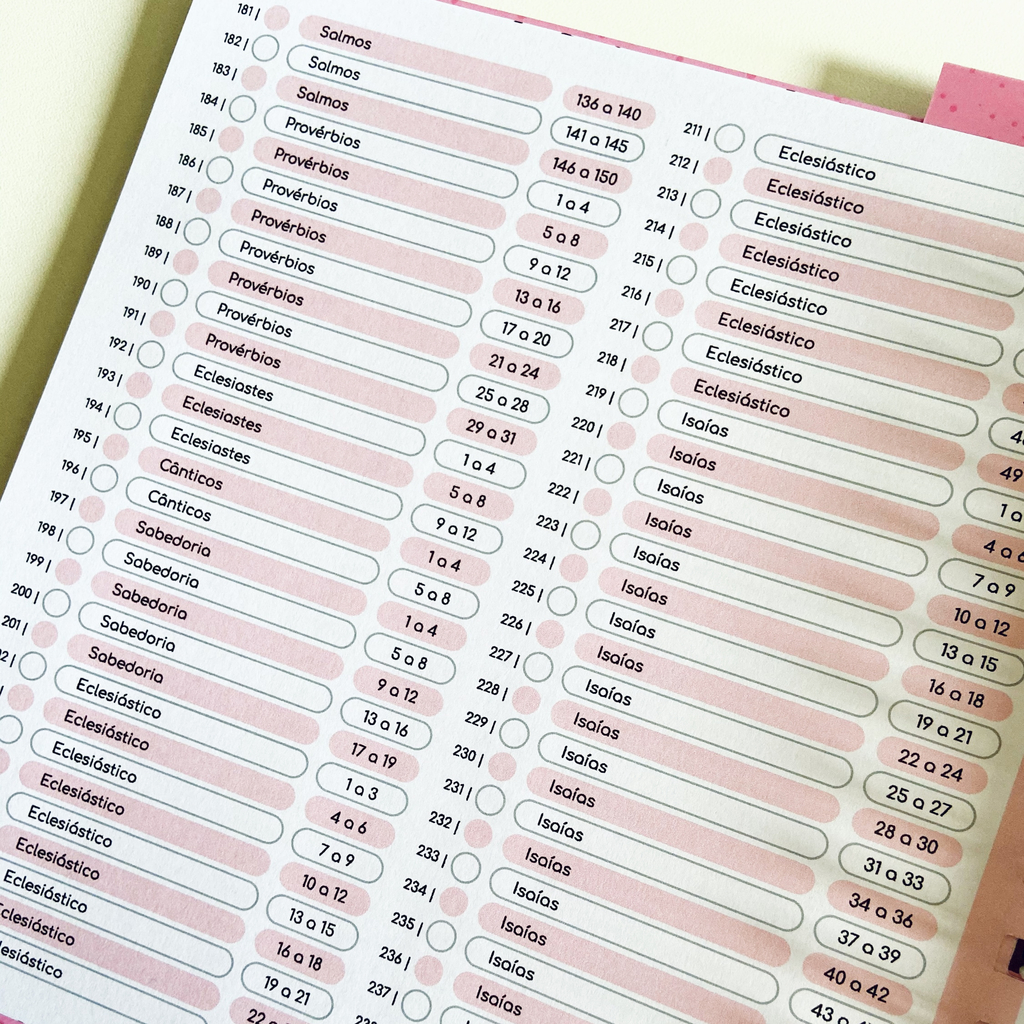 181 | Salmos 136 a 140
182 | Salmos 141 a 145
183 | Salmos 146 a 150
184 | Provérbios 1 a 4
185 | Provérbios 5 a 8
186 | Provérbios 9 a 12
187 | Provérbios 13 a 16
188 | Provérbios 17 a 20
189 | Provérbios 21 a 24
190 | Provérbios 25 a 28
191 | Provérbios 29 a 31
192 | Eclesiastes 1 a 4
193 | Eclesiastes 5 a 8
194 | Eclesiastes 9 a 12
195 | Cânticos 1 a 4
196 | Cânticos 5 a 8
197 | Sabedoria 1 a 4
198 | Sabedoria 5 a 8
199 | Sabedoria 9 a 12
200 | Sabedoria 13 a 16
201 | Sabedoria 17 a 19
| Eclesiástico 1 a 3
| Eclesiástico 4 a 6
Eclesiástico 7 a 9
Eclesiástico 10 a 12
Eclesiástico 13 a 15
Eclesiástico 16 a 18
Eclesiástico 19 a 21
22 a
211 | Eclesiástico
212 | Eclesiástico
213 | Eclesiástico
214 | Eclesiástico
215 | Eclesiástico
216 | Eclesiástico
217 | Eclesiástico
218 | Eclesiástico 49
219 | Isaías 1 a
220 | Isaías 4 a 6
221 | Isaías 7 a 9
222 | Isaías 10 a 12
223 | Isaías 13 a 15
224 | Isaías 16 a 18
225 | Isaías 19 a 21
226 | Isaías 22 a 24
227 | Isaías 25 a 27
228 | Isaías 28 a 30
229 | Isaías 31 a 33
230 | Isaías 34 a 36
231 | Isaías 37 a 39
232 | Isaías 40 a 42
233 | Isaías 43 a
234 | Isaías
235 | Isaías
236 | Isaías
237 |